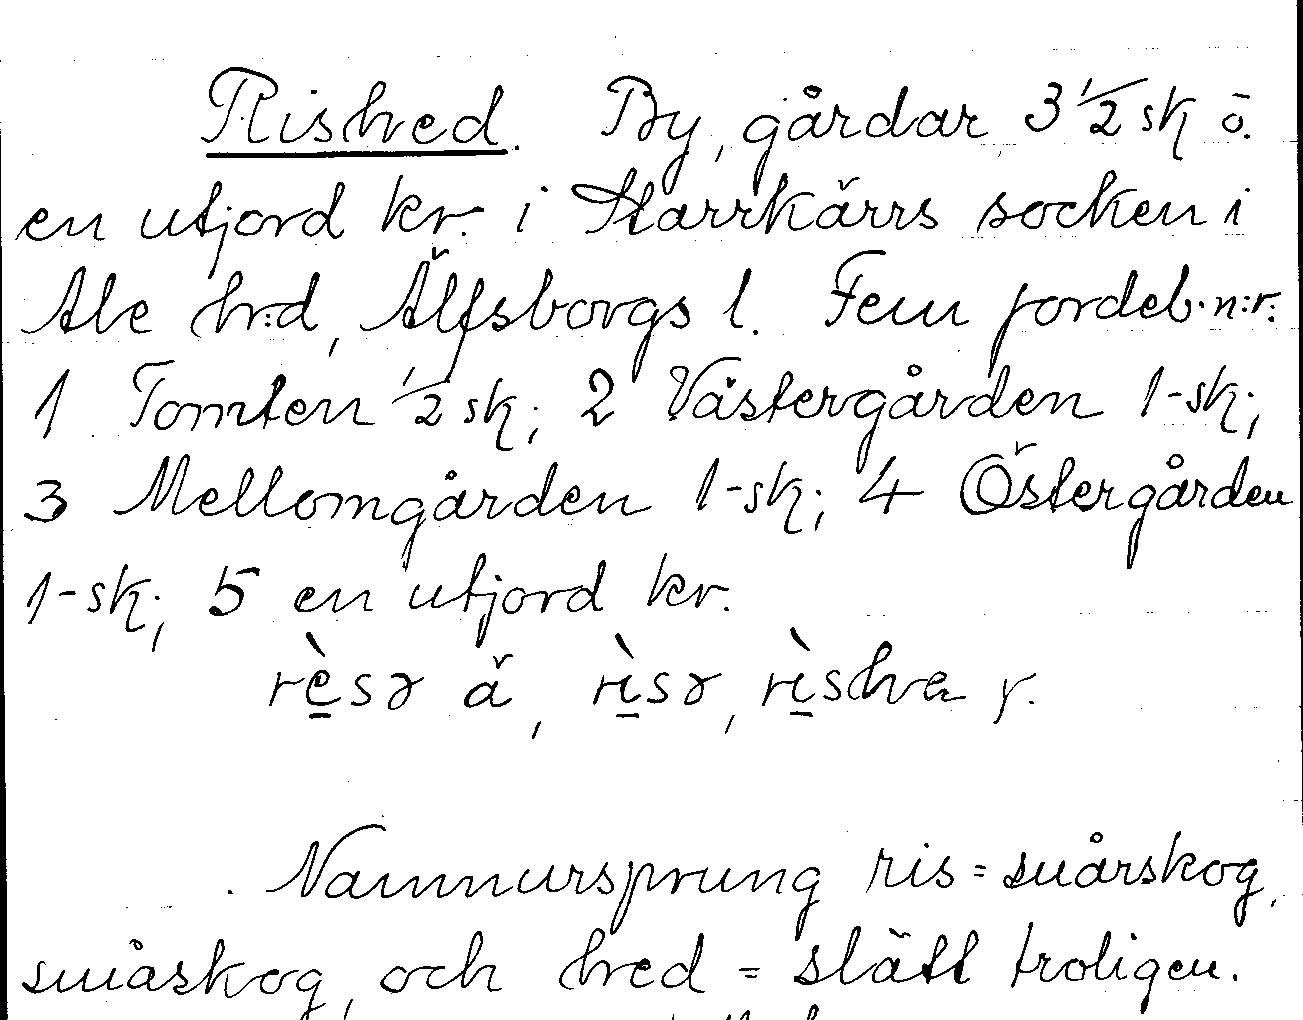 Rishved. By, gårdar 3 1/2 sk ö.
en utjord kr. i Starrkärrs socken i
Ale hrd, Älfsborgs l. Fem jordeb. n:r:
1 Tomten 1/2 sk; 2 Västergården 1-sk;
3 Mellomgården 1-sk; 4 Östergården
1-sk; 5 en utjord kr.
rèsə ä, rìsə, rìshve y.
Namnursprung ris = snårskog,
småskog, och hved = slätt troligen.